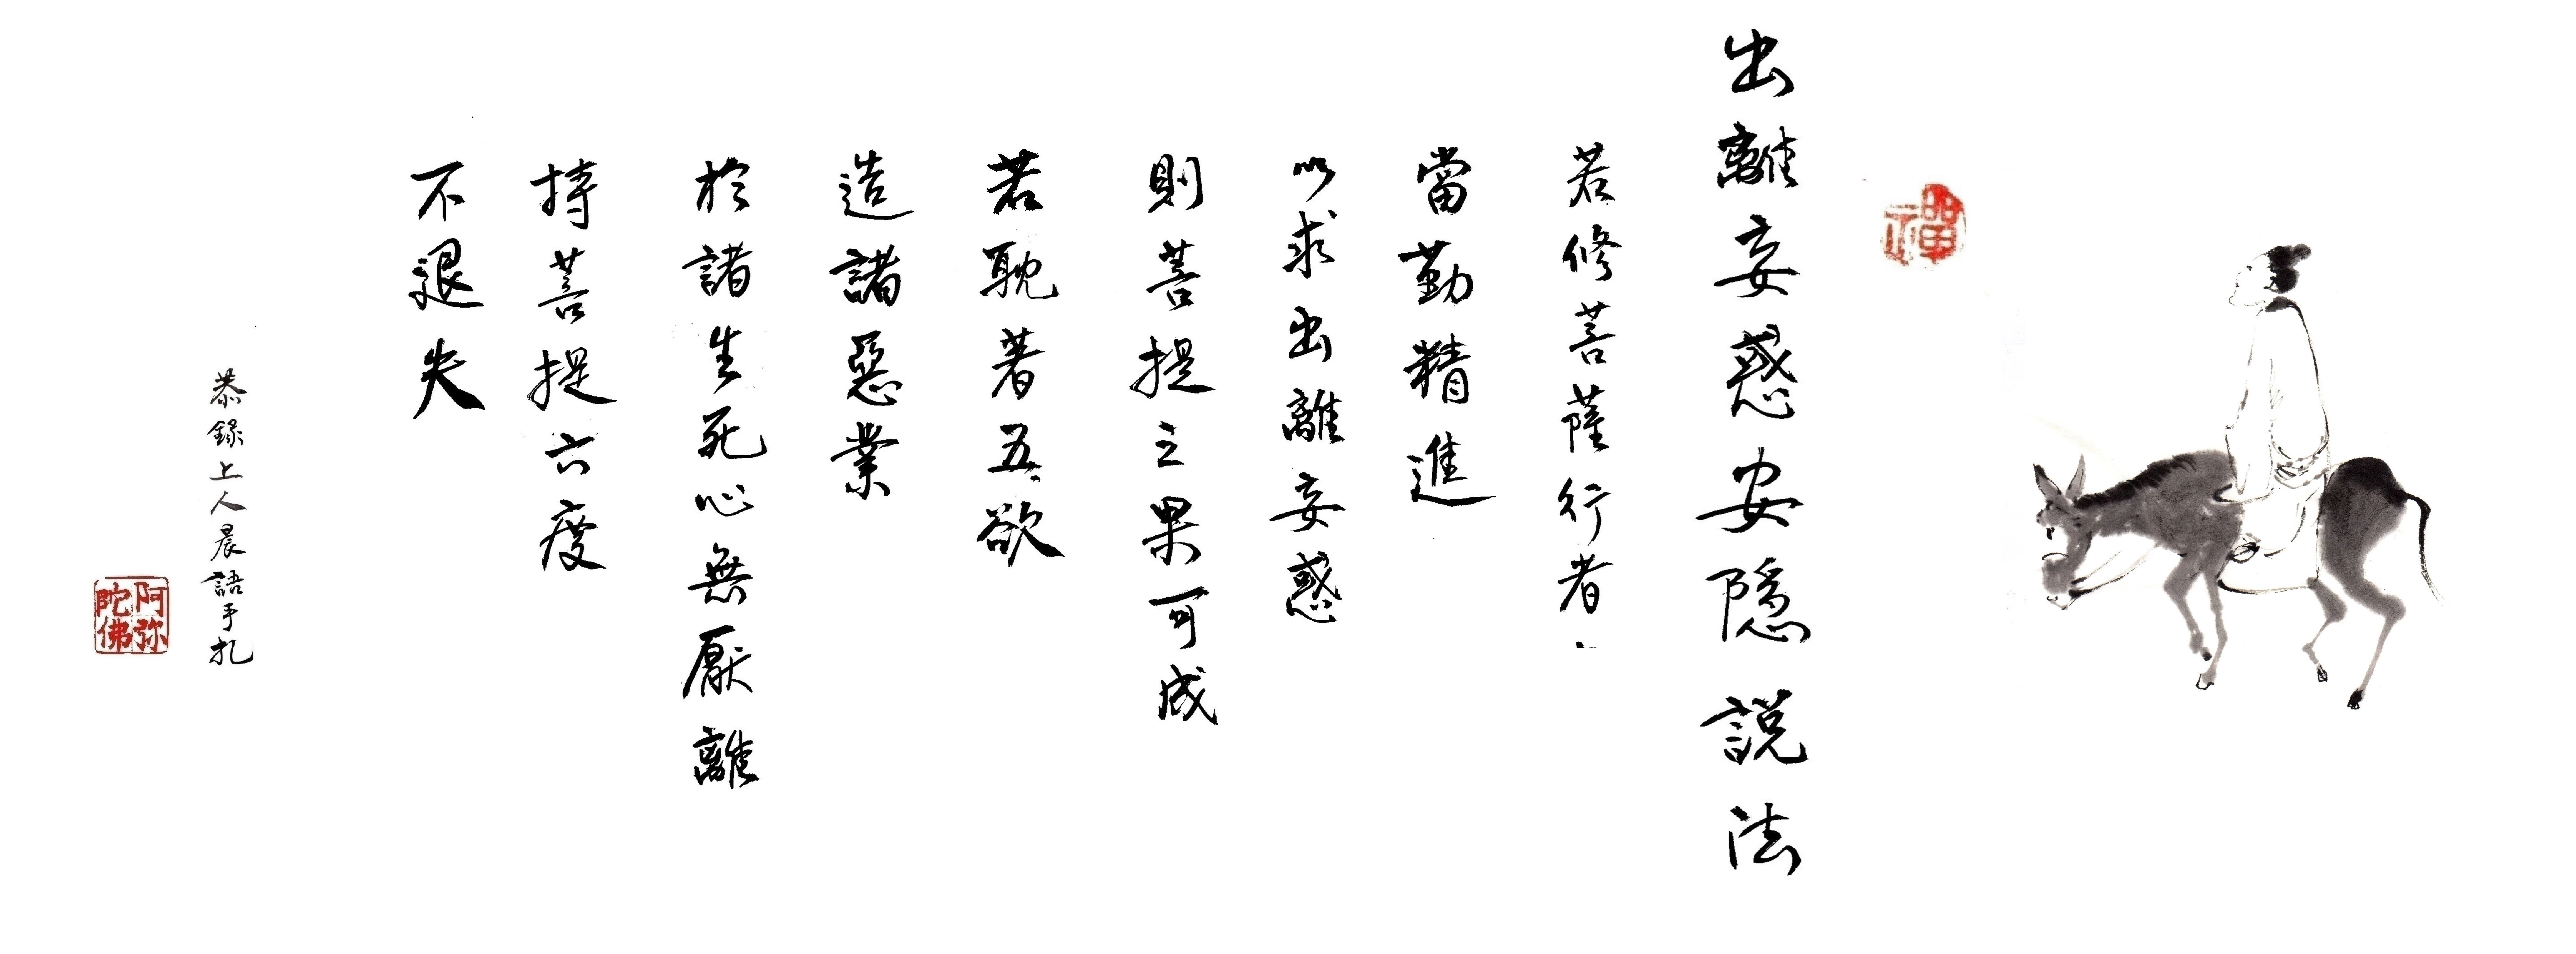 禪
出離妄惑安隱說法
若修菩薩行者
當勤精進
以求出離妄惑
則菩提之果可成
若耽著五欲
造諸惡業
於諸生死心無厭離
持菩提六度
不退失
恭錄上人晨語手札
阿弥陀佛